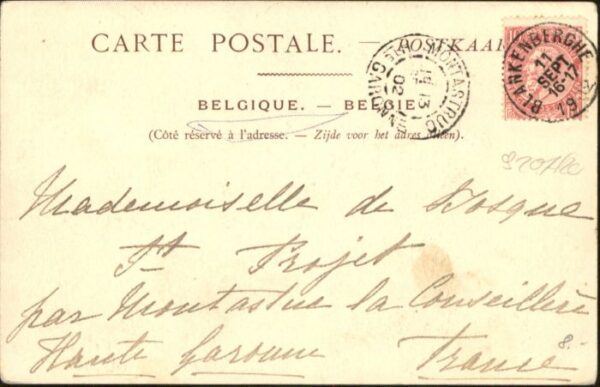 CARTE POSTALE. — POSTKAAR
BELGIQUE. — BELGIE
(Côté réservé à l'adresse. — Zijde voor het adres alleen)
BLANKENBERGHE
11
SEPT
16-17
19
MONTASTRUC
13
02
HTE GARONNE
Mademoiselle de Bosque
St Projet
par Montastruc la Conseillère
Haute Garonne France
8.-